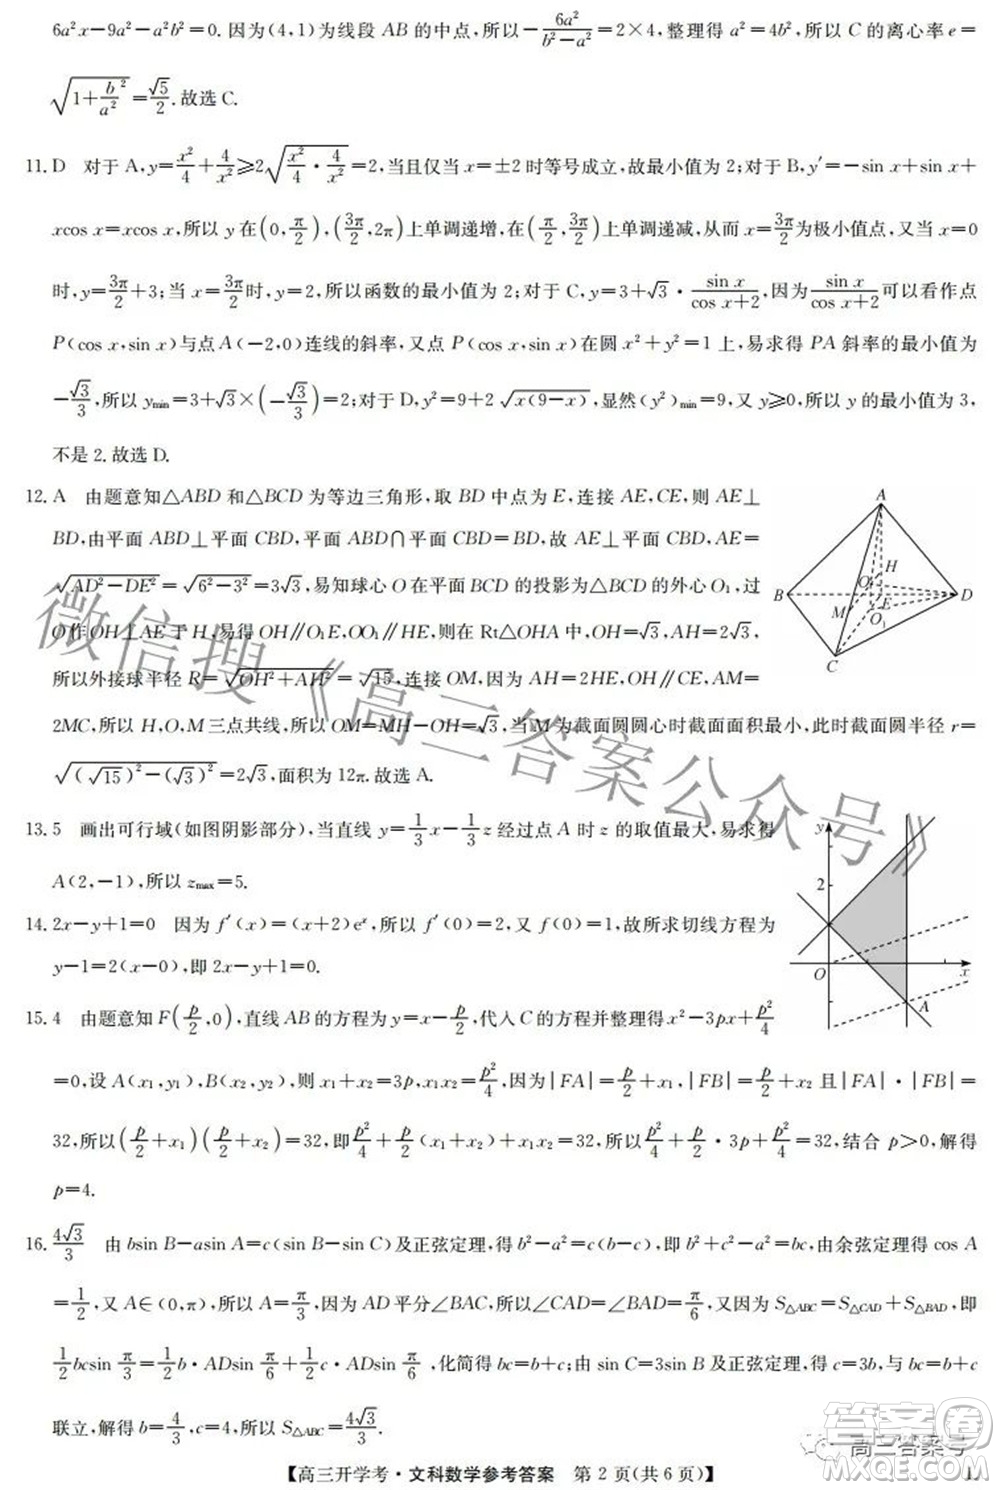 6a²x－9a²－a²b²＝0. 因为(4,1)为线段 AB 的中点,所以－6a²/(b²－a²)＝2×4,整理得 a²＝4b²,所以 C 的离心率 e＝
√(1＋b²/a²)＝√5/2. 故选 C.
11. D 对于 A,y＝x²/4＋4/x²≥2√(x²/4·4/x²)＝2,当且仅当 x＝±2 时等号成立,故最小值为 2;对于 B,y′＝－sin x＋sin x＋
xcos x＝xcos x,所以 y 在(0,π/2),(3π/2,2π)上单调递增,在(π/2,3π/2)上单调递减,从而 x＝3π/2为极小值点,又当 x＝0
时,y＝3π/2＋3;当 x＝3π/2时,y＝2,所以函数的最小值为 2;对于 C,y＝3＋√3·sin x/(cos x＋2),因为sin x/(cos x＋2)可以看作点
P(cos x,sin x)与点 A(－2,0)连线的斜率,又点 P(cos x,sin x)在圆 x²＋y²＝1 上,易求得 PA 斜率的最小值为
－√3/3,所以 yₘᵢₙ＝3＋√3×(－√3/3)＝2;对于 D,y²＝9＋2√(x(9－x)),显然(y²)ₘᵢₙ＝9,又 y≥0,所以 y 的最小值为 3,
不是 2. 故选 D.
12. A 由题意知△ABD 和△BCD 为等边三角形,取 BD 中点为 E,连接 AE,CE,则 AE⊥
BD,由平面 ABD⊥平面 CBD,平面 ABD∩平面 CBD＝BD,故 AE⊥平面 CBD,AE＝
√(AD²－DE²)＝√(6²－3²)＝3√3,易知球心 O 在平面 BCD 的投影为△BCD 的外心 O₁,过
O 作 OH⊥AE 于 H,易得 OH∥O₁E,OO₁∥HE,则在 Rt△OHA 中,OH＝√3,AH＝2√3,
所以外接球半径 R＝√(OH²＋AH²)＝√15,连接 OM,因为 AH＝2HE,OH∥CE,AM＝
2MC,所以 H,O,M 三点共线,所以 OM＝MH－OH＝√3,当 M 为截面圆圆心时截面面积最小,此时截面圆半径 r＝
√((√15)²－(√3)²)＝2√3,面积为 12π. 故选 A.
A
H
O
B
M
E
D
O₁
C
13. 5 画出可行域(如图阴影部分),当直线 y＝1/3x－1/3z 经过点 A 时 z 的取值最大,易求得
A(2,－1),所以 zₘₐₓ＝5.
14. 2x－y＋1＝0 因为 f′(x)＝(x＋2)eˣ,所以 f′(0)＝2,又 f(0)＝1,故所求切线方程为
y－1＝2(x－0),即 2x－y＋1＝0.
y
2
O
x
A
15. 4 由题意知 F(p/2,0),直线 AB 的方程为 y＝x－p/2,代入 C 的方程并整理得 x²－3px＋p²/4
＝0,设 A(x₁,y₁),B(x₂,y₂),则 x₁＋x₂＝3p,x₁x₂＝p²/4,因为|FA|＝p/2＋x₁,|FB|＝p/2＋x₂ 且|FA|·|FB|＝
32,所以(p/2＋x₁)(p/2＋x₂)＝32,即p²/4＋p/2(x₁＋x₂)＋x₁x₂＝32,所以p²/4＋p/2·3p＋p²/4＝32,结合 p＞0,解得
p＝4.
16. 4√3/3 由 bsin B－asin A＝c(sin B－sin C)及正弦定理,得 b²－a²＝c(b－c),即 b²＋c²－a²＝bc,由余弦定理得 cos A
＝1/2,又 A∈(0,π),所以 A＝π/3,因为 AD 平分∠BAC,所以∠CAD＝∠BAD＝π/6,又因为 S△ABC＝S△CAD＋S△BAD,即
1/2bcsin π/3＝1/2b·ADsin π/6＋1/2c·ADsin π/6,化简得 bc＝b＋c;由 sin C＝3sin B 及正弦定理,得 c＝3b,与 bc＝b＋c
联立,解得 b＝4/3,c＝4,所以 S△ABC＝4√3/3.
【高三开学考·文科数学参考答案 第 2 页(共 6 页)】
L
微信搜《高三答案公众号》
高三答案号
答案圈